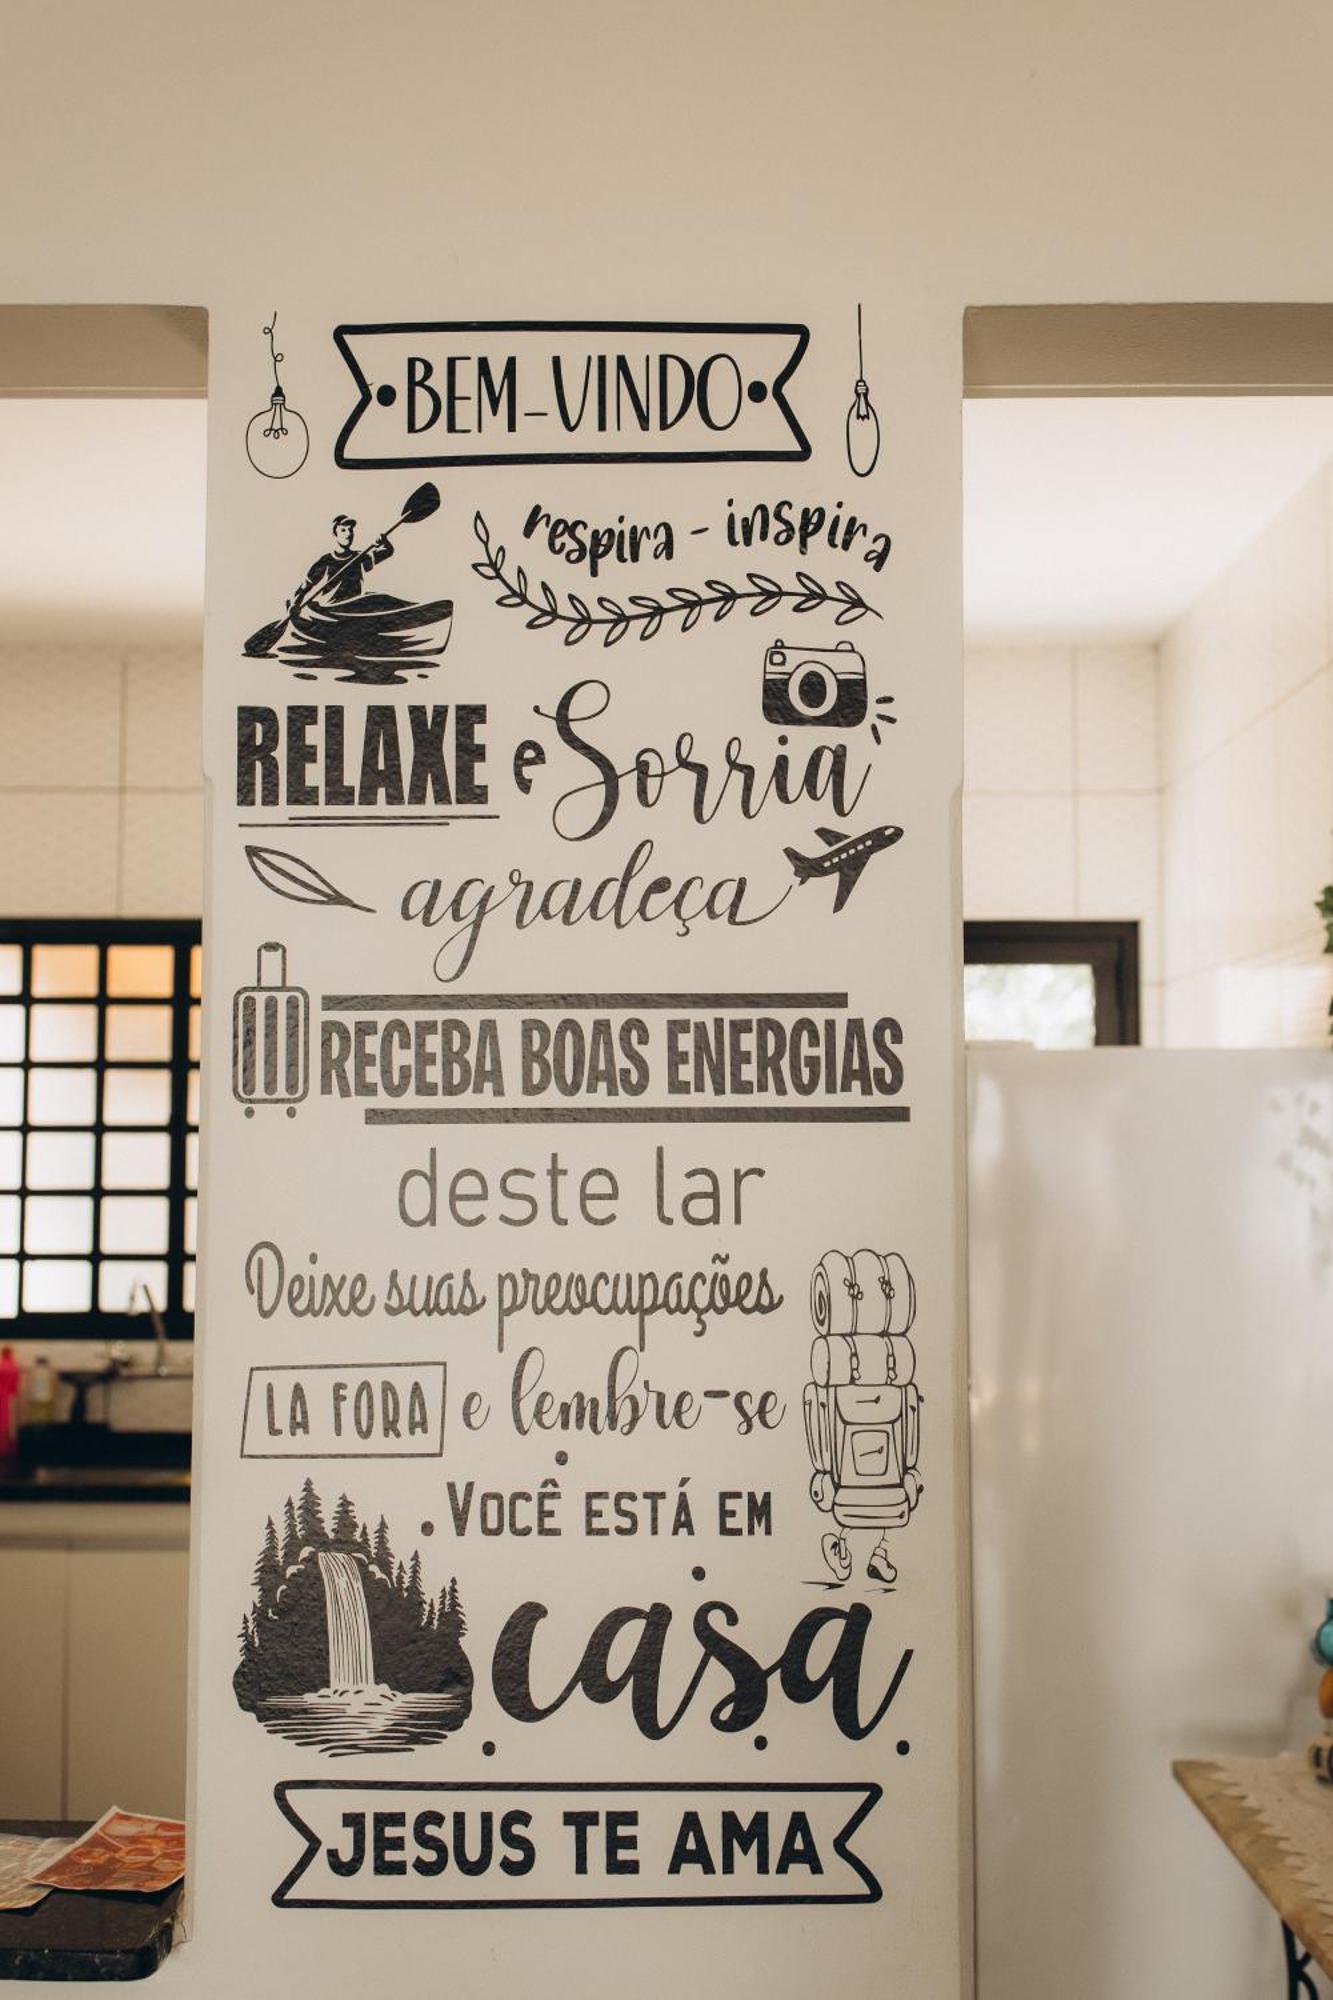 BEM-VINDO
respira - inspira
RELAXE e Sorria
agradeça
RECEBA BOAS ENERGIAS
deste lar
Deixe suas preocupações
LA FORA e lembre-se
VOCÊ ESTÁ EM
casa
JESUS TE AMA